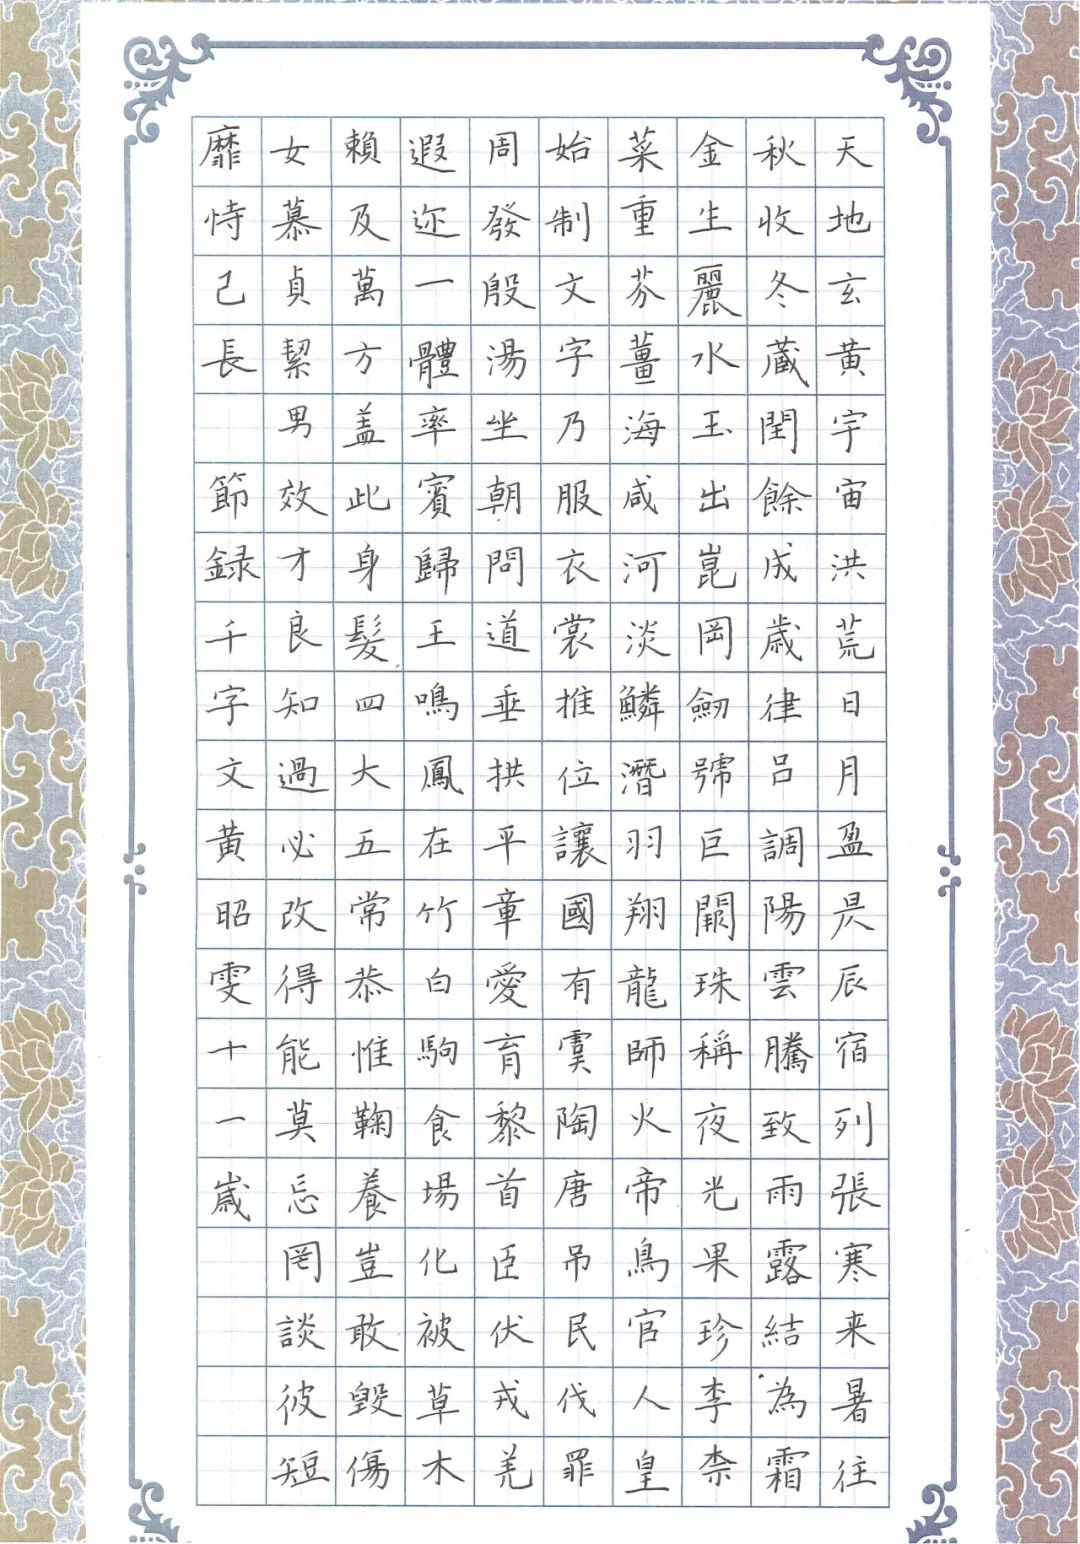 天地玄黄宇宙洪荒日月盈昃辰宿列張寒来暑往
秋收冬蔵閏餘成歳律呂調陽雲騰致雨露結為霜
金生麗水玉出崑岡劒號巨闕珠稱夜光果珍李柰
菜重芥薑海咸河淡鱗潛羽翔龍師火帝鳥官人皇
始制文字乃服衣裳推位讓國有虞陶唐吊民伐罪
周發殷湯坐朝問道垂拱平章愛育黎首臣伏戎羌
遐迩一體率賓歸王鳴鳳在竹白駒食場化被草木
賴及萬方盖此身髮四大五常恭惟鞠養豈敢毀傷
女慕貞絜男效才良知過必改得能莫忘罔談彼短
靡恃己長 節録千字文黄昭雯十一歳